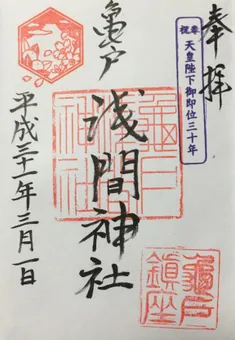 奉拝
奉祝 天皇陛下御即位三十年
亀戸
浅間神社
平成三十一年三月一日
亀戸
神社
亀戸
鎮座